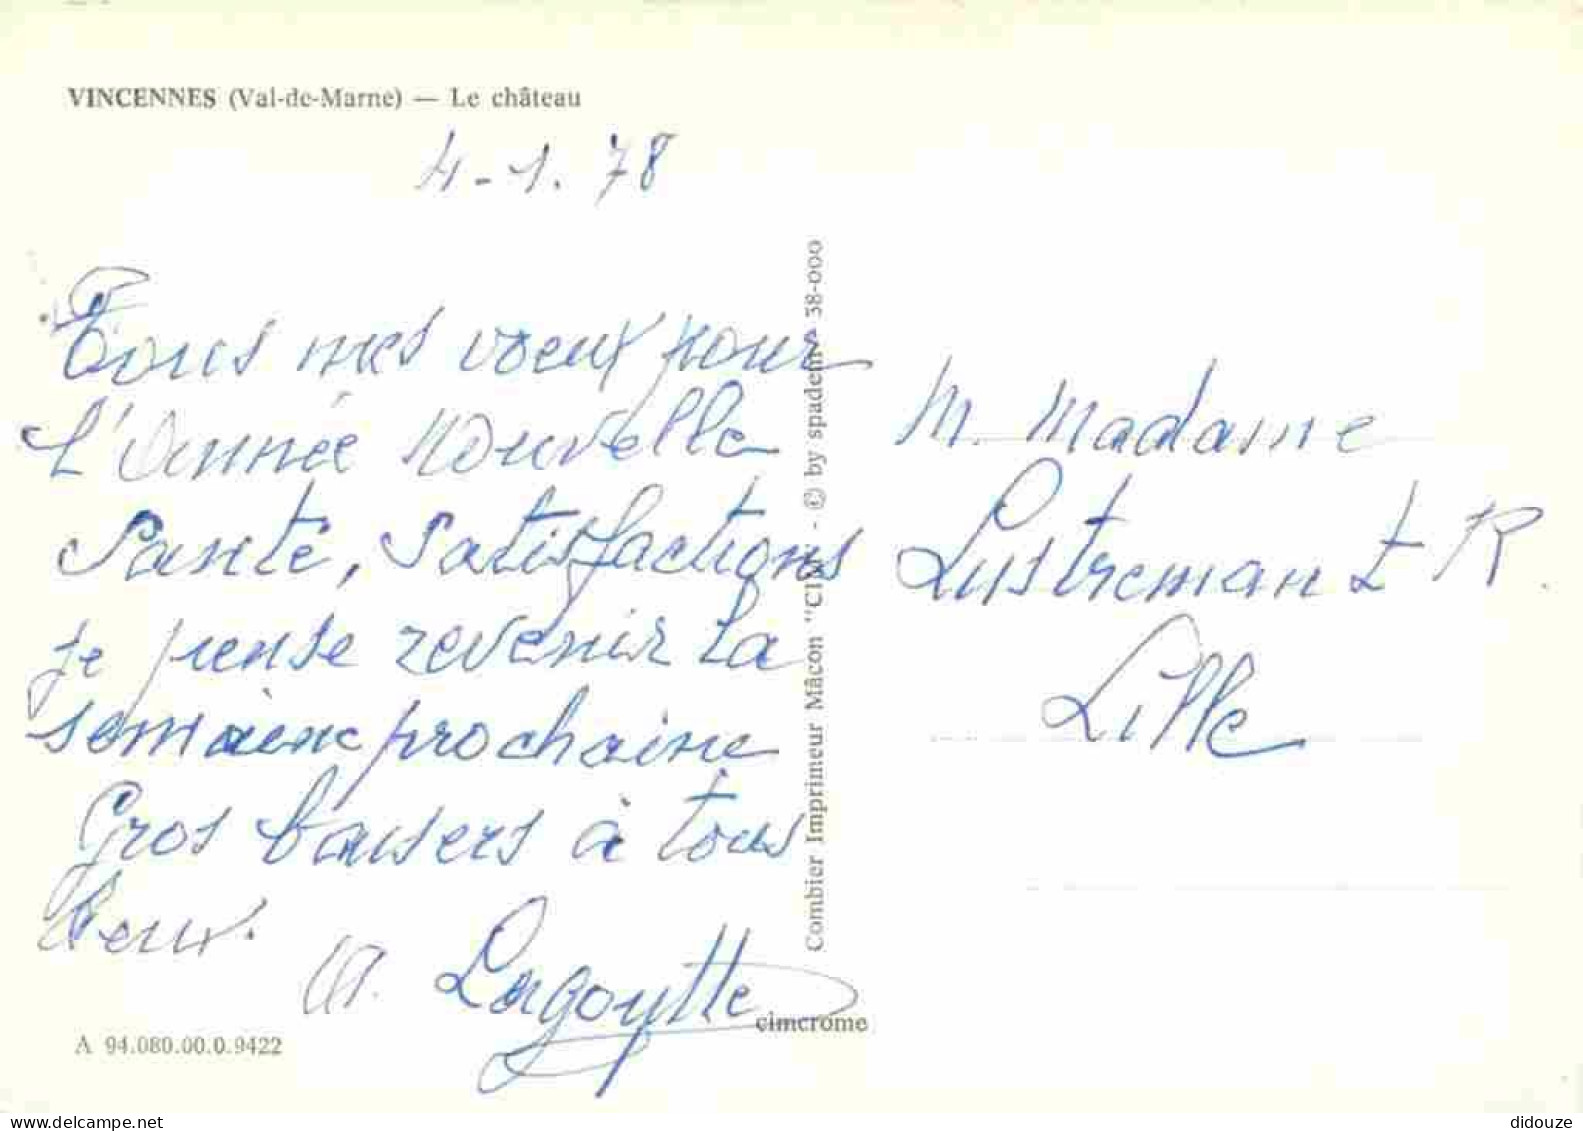 VINCENNES (Val-de-Marne) — Le château
4-1.78
Tous mes voeux pour
L'Année Nouvelle
Santé, Satisfactions
Je pense revenir la
semaine prochaine
Gros baisers à tous
deux.
A. Lagoytte
A 94.080.00.0.9422
Combier Imprimeur Mâcon "CIM" - © by spadem - 38-000
cimcrome
M. Madame
Lustremant R.
Lille
didouze